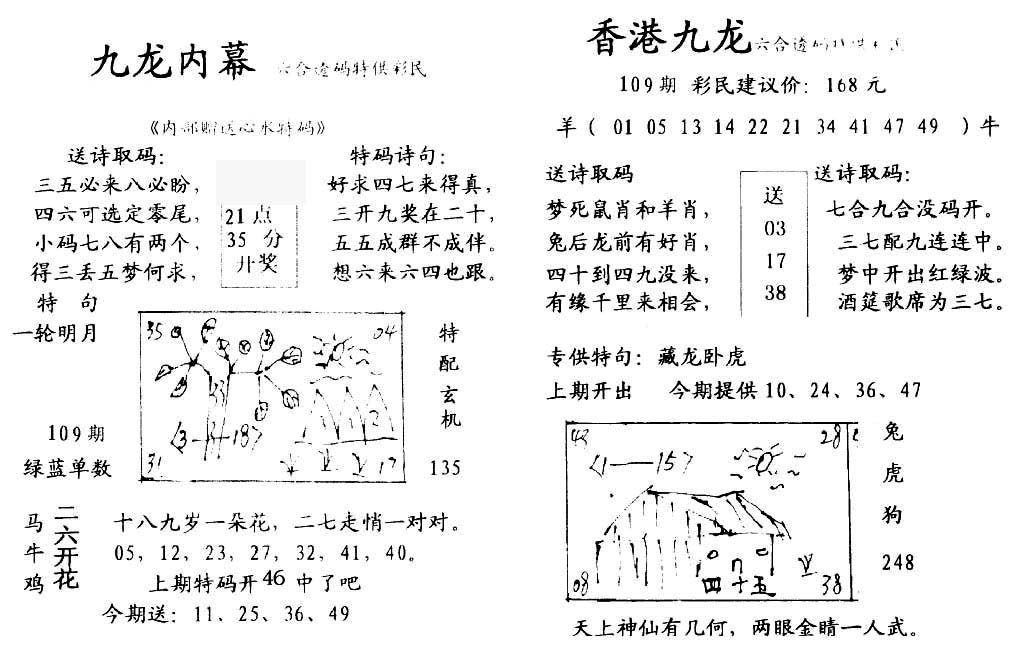 九龙内幕 六合透码特供彩民
《内部赠送心水特码》
送诗取码：
三五必来八必盼，
四六可选定零尾，
小码七八有两个，
得三丢五梦何求，
特 句
一轮明月
21 点
35 分
开奖
特码诗句：
好求四七来得真，
三开九奖在二十，
五五成群不成伴。
想六来六四也跟。
35
04
31
17
特配玄机
135
109期
绿蓝单数
马
牛
鸡
二六开花
十八九岁一朵花，二七走悄一对对。
05，12，23，27，32，41，40。
上期特码开46 中了吧
今期送：11、25、36、49
香港九龙六合透码特供彩民
109期 彩民建议价：168 元
羊（ 01 05 13 14 22 21 34 41 47 49 ）牛
送诗取码
梦死鼠肖和羊肖，
兔后龙前有好肖，
四十到四九没来，
有缘千里来相会，
送
03
17
38
送诗取码：
七合九合没码开。
三七配九连连中。
梦中开出红绿波。
酒筵歌席为三七。
专供特句：藏龙卧虎
上期开出 今期提供10、24、36、47
28
1——157
四十五
08
38
兔
虎
狗
248
天上神仙有几何，两眼金睛一人武。